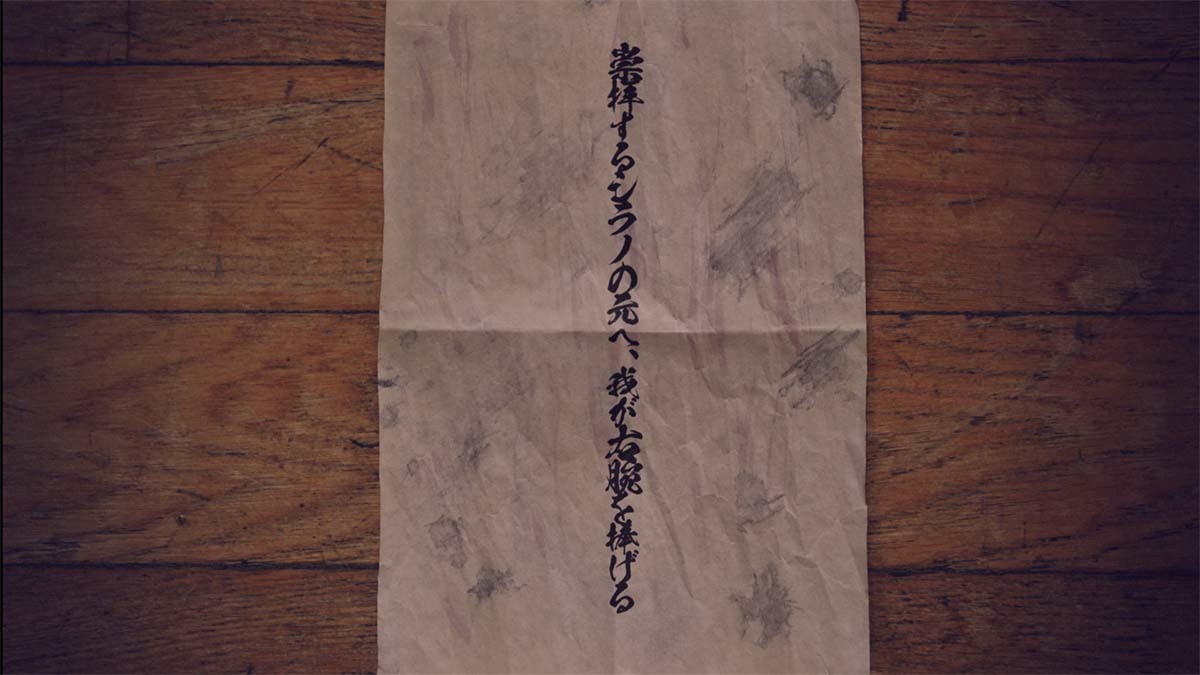 崇拝するの元へ、我が右腕を捧げる